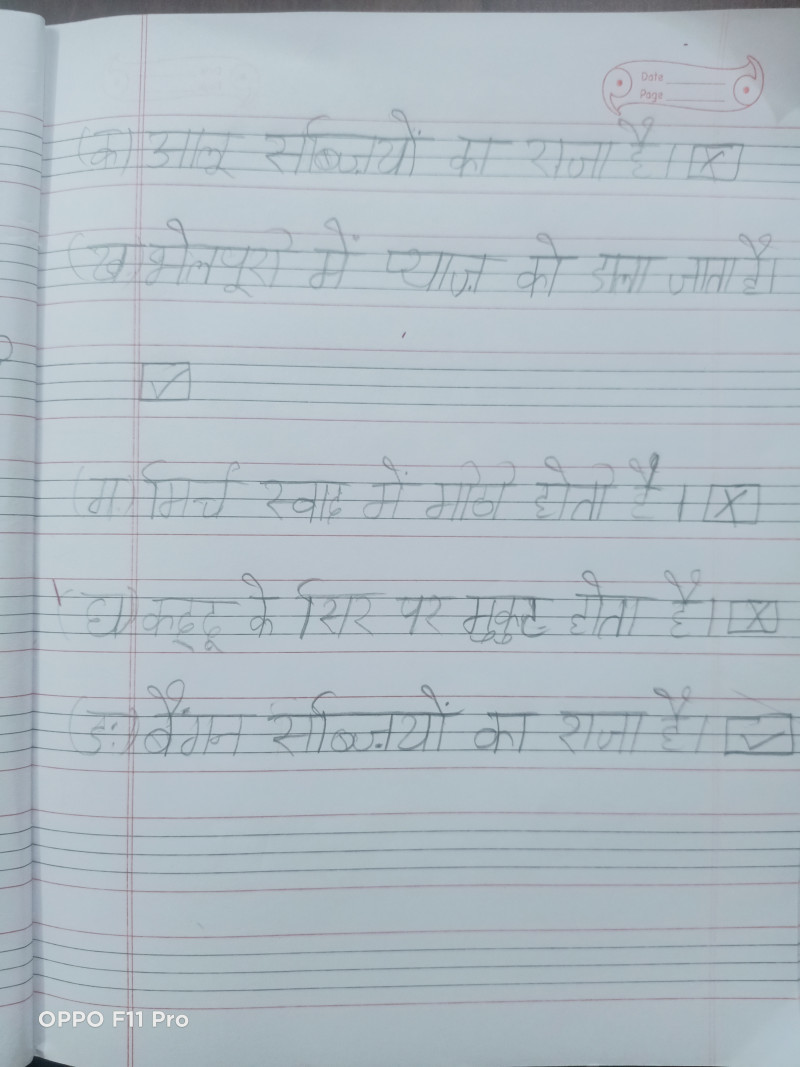 Date
Page
(क) आलू सब्जियों का राजा है। ☒
(ख) भेलपूरी में प्याज को डाला जाता है।
☑
(ग) मिर्च स्वाद में मीठी होती है। ☒
(घ) कद्दू के सिर पर मूकुट होता है। ☒
(ङ) बैंगन सब्जियों का राजा है। ☑
OPPO F11 Pro